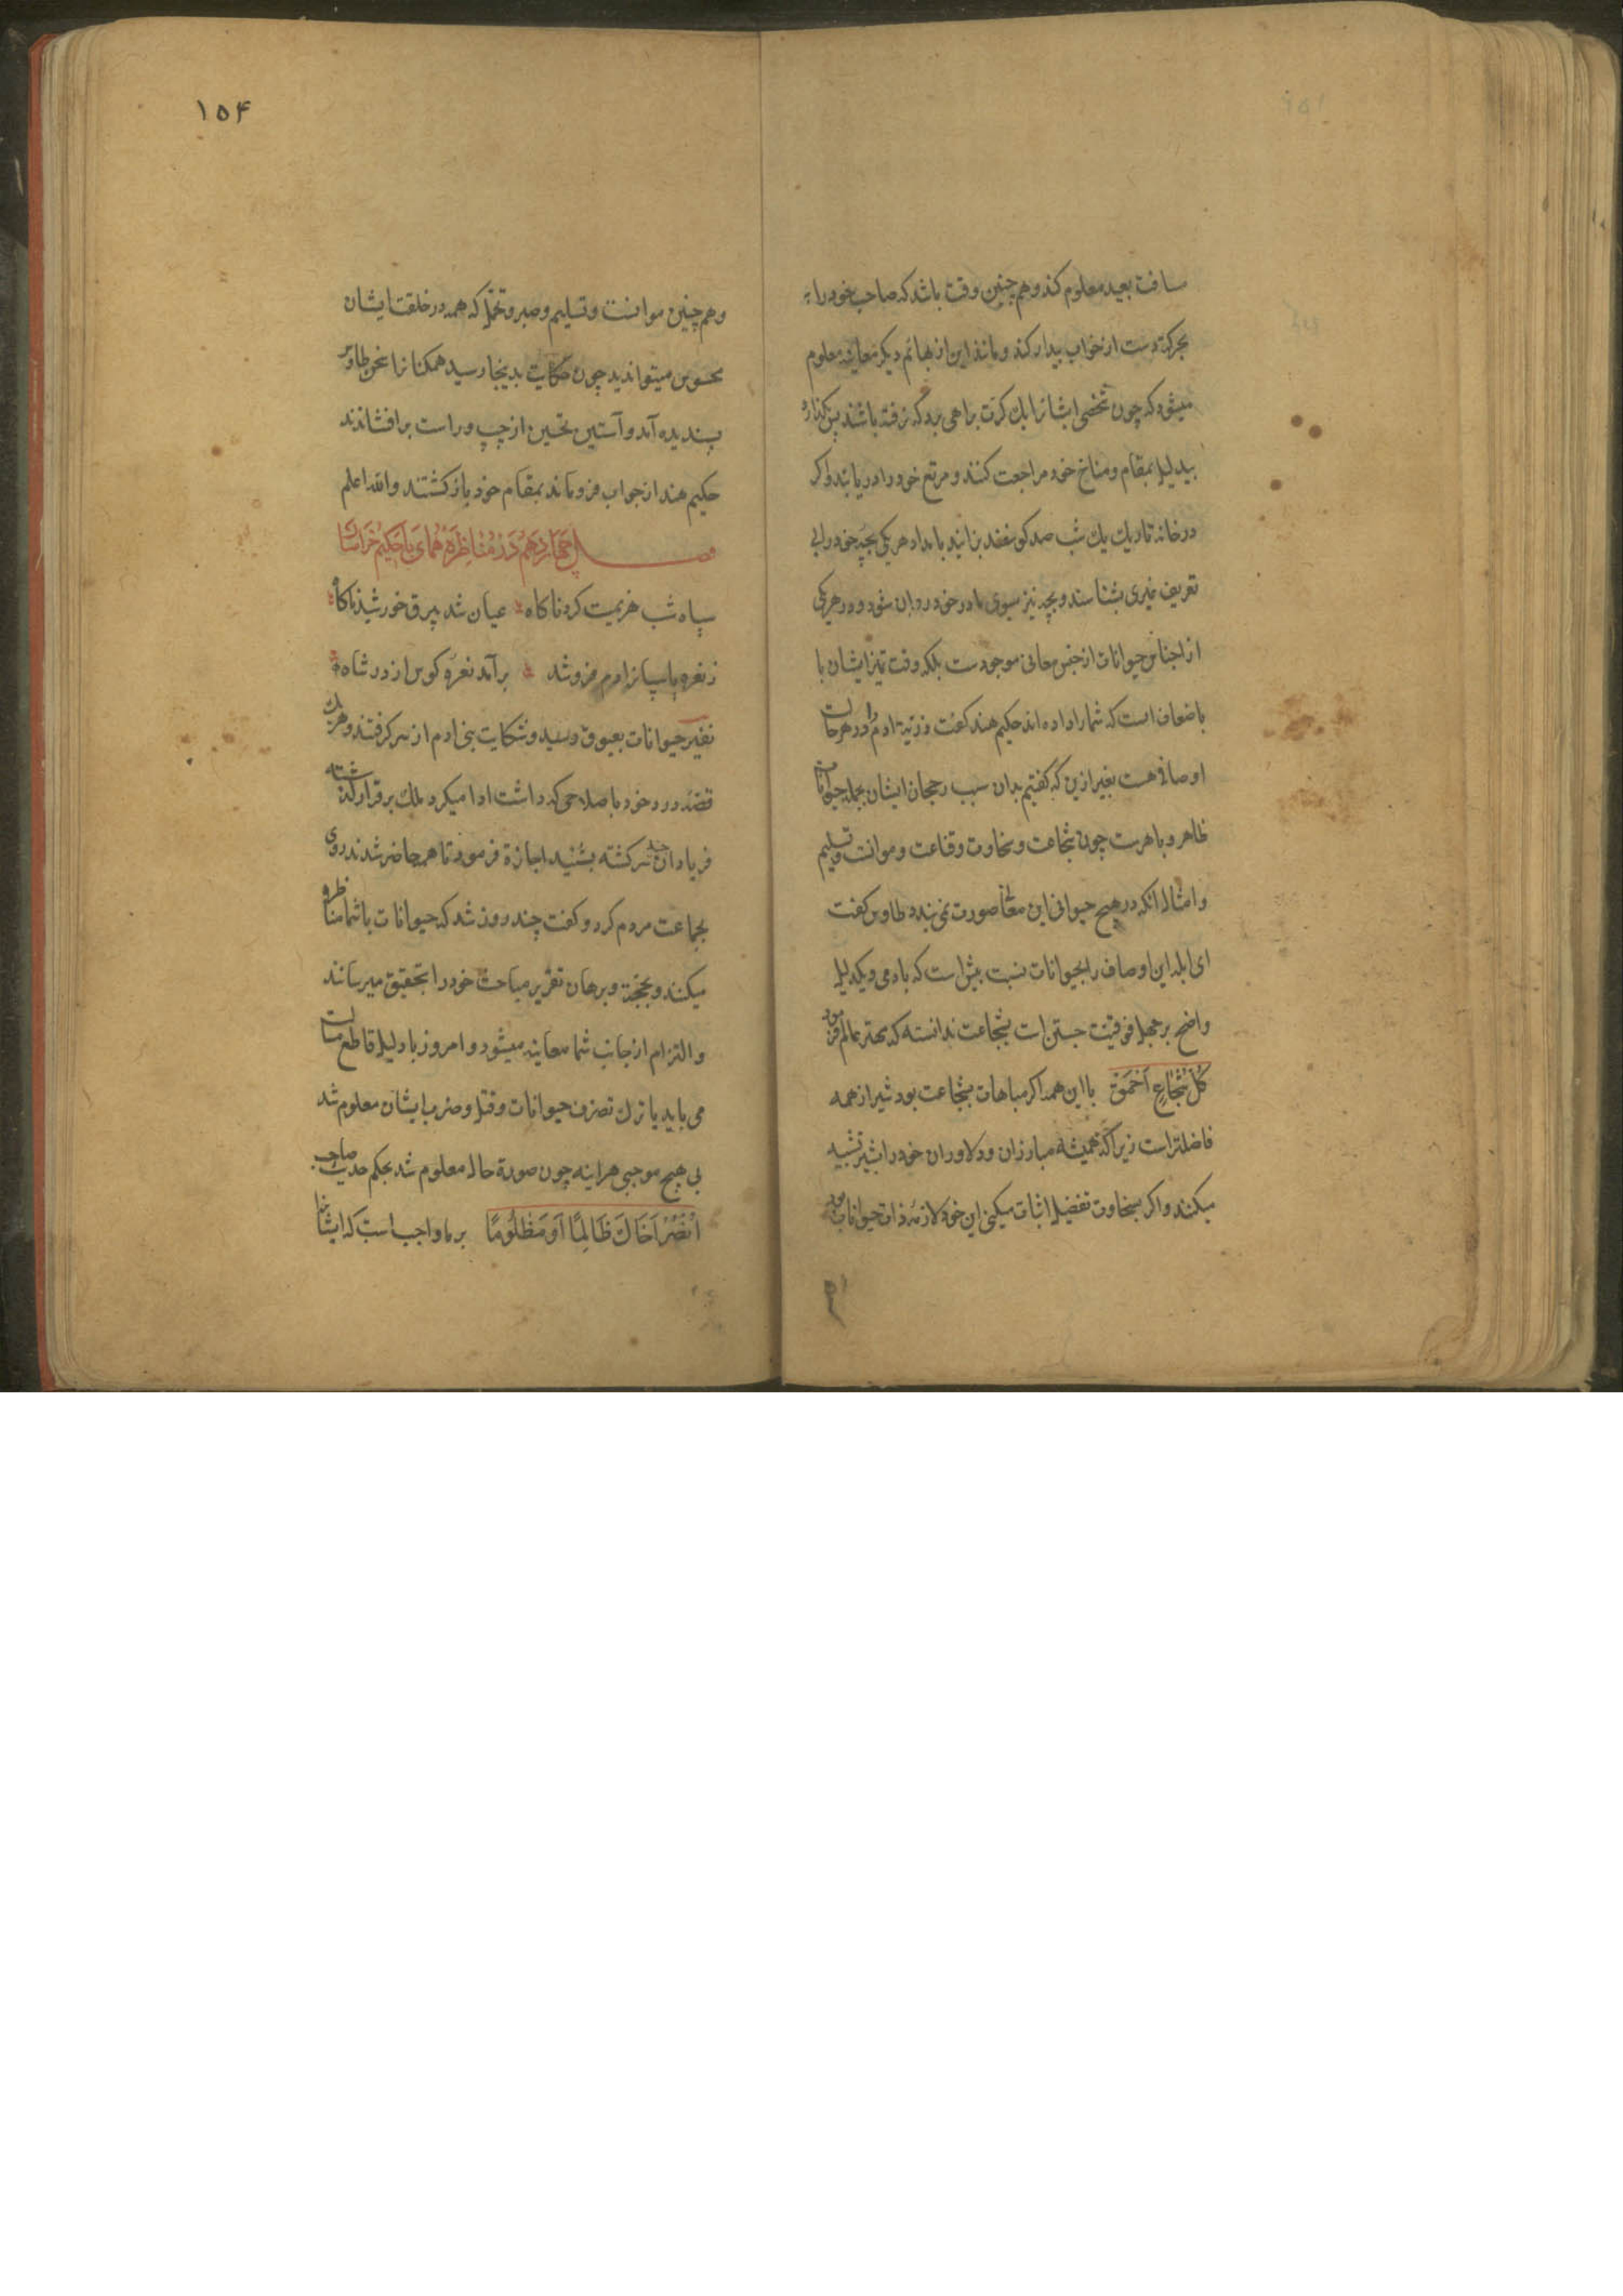 مسافت بعید معلوم کند و هم چنین وقت باشد که صاحب خود را به
بحرکة دست از خواب بیدار کند و مانند این از بهائم دیکر معاینه معلوم
میشود که چون شخصی ایشانرا یک کرت براهی برد که نرفته باشند پس کذارد
بیدلیل بمقام و مناخ خود مراجعت کنند و مرتع خود را دریابند و اکر
در خانه تاریک یک شب صد کوسفند بزایند بامداد هر یکی بچه خود را بی
تعریف غیری بشناسد و بچه نیز سوی مادر خود روان شود و در هر یکی
از اجناس حیوانات ازجنس معانی موجودست بلکه وقت تمیز ایشان با
باضعاف است که شما را داده اند حکیم هند کفت ذریة ادم را در هر حالت
اوصافی هست بغیر ازین که کفتیم بدان سبب رجحان ایشان بجمله حیوانات
ظاهر و باهرست چون شجاعت و سخاوت و قناعت و موانست و تسلیم
و امثال انکه در هیچ حیوانی این معانی صورت نمی بندد طاوس کفت
ای ابله این اوصاف را بحیوانات نسبت بیش است که بادمی و یکدلیل
واضح بر جهل فوقیت جستن است بشجاعت ندانسته که مهتر عالم فرمود
کُلُّ شُجَاعٍ اَحْمَقٌ با این همه اکر مباهات بشجاعت بود شیر از همه
فاضلتر است زیرا که همیشه مبارزان و دلاوران خود را بشیر تشبیه
میکنند و اکر بسخاوت تفضیل اثبات میکنی این خود لازمه ذات حیوانات بود
۱۵۴
و هم چنین موانست و تسلیم و صبر و تحمل که همه در خلقت ایشان
محسوس میتوان دید چون حکایت بدینجا رسید همکنانرا سخن طاوس
پسندیده آمد و آستین تحسین از چپ و راست برافشاندند
حکیم هند از جواب فرو ماند بمقام خود باز کشتند والله اعلم
فصل چَهَاردَهُم دَرْ مُنَاظِرَهٔ هُمَای بَا حَکِیْم خُرَاسَان
سپاه شب هزیمت کرد ناکاه عیان شد بیرق خورشید ناکاه
ز نغره پاسبانرا دم فرو شد برآمد نعره کوس از در شاه
نفیر حیوانات بعیوق رسید و شکایت بنی ادم از سر کرفتند و هر یک
قصه درد خود باصلاحی که داشت ادا میکرد ملک بر قرار کذشته
فریاد ان سرکشته بشنید اجازة فرمود تا همه حاضر شدند روی
بجماعت مردم کرد و کفت چند روز شد که حیوانات با شما مناظره
میکنند و بحجة و برهان تقریر مباحث خود را بتحقیق میرسانند
و التزام از جانب شما معاینه میشود و امروز یا دلیل قاطع
می باید یا ترک تصرف حیوانات و قتل و ضرب ایشان معلوم شد
بی هیچ موجبی هراینه چون صورة حال معلوم شد بحکم حدیث صاحب
اُنْصُرْ اَخَاكَ ظَالِمًا اَوْ مَظْلُومًا بر ما واجب است که ایشانرا